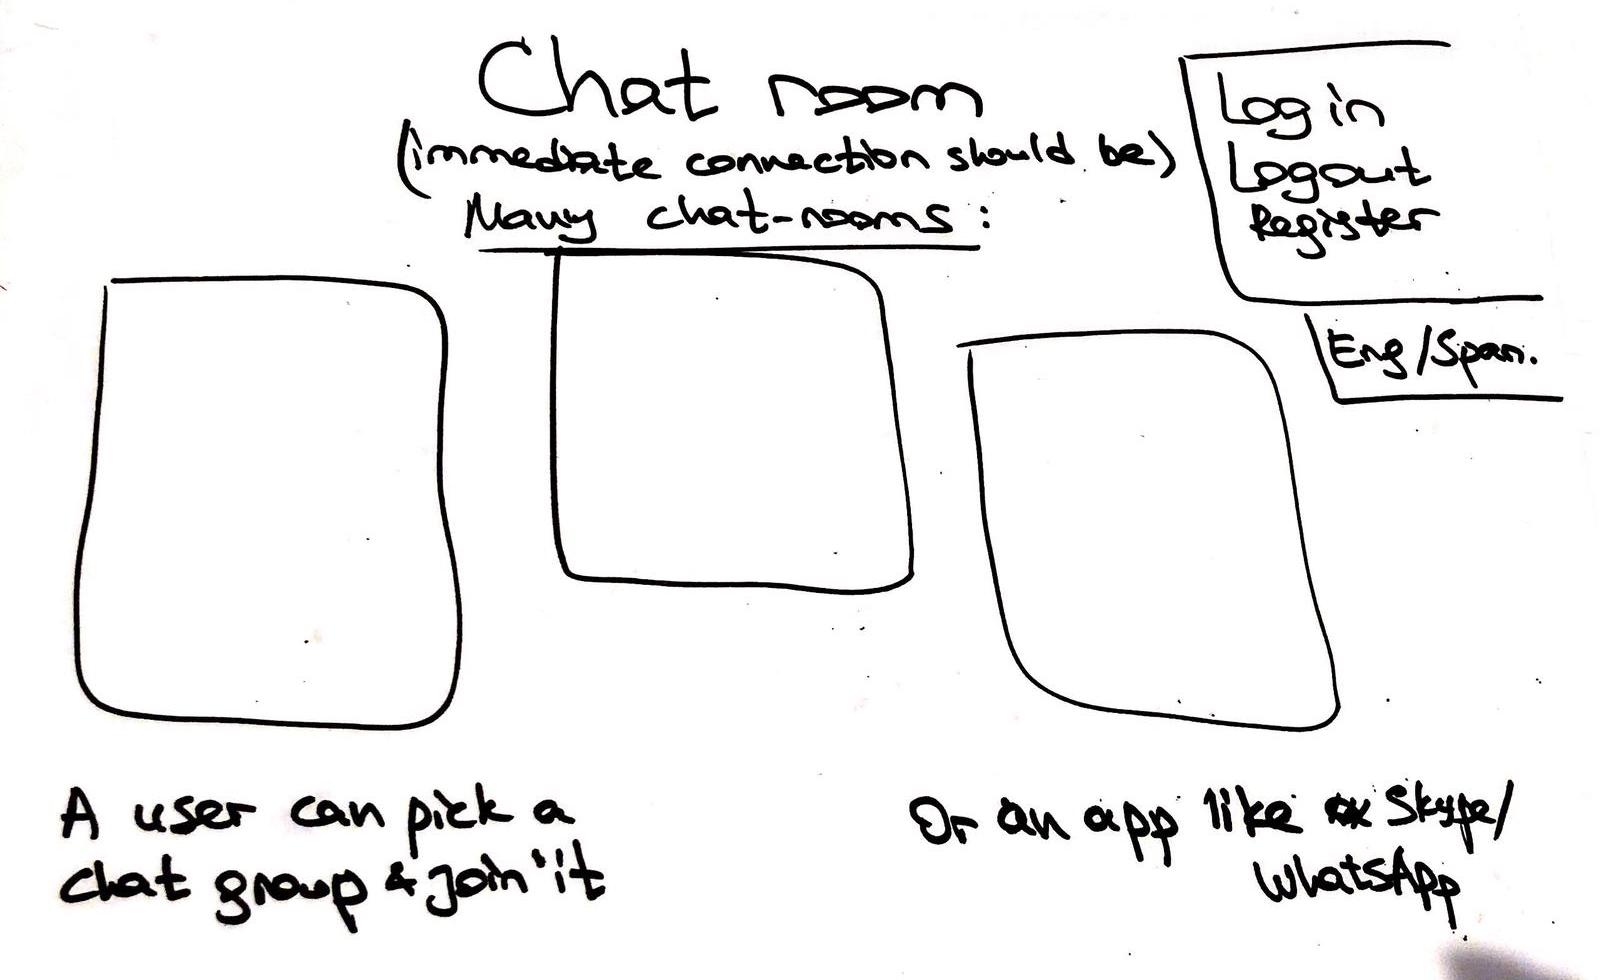 Chat room
(immediate connection should be)
Many chat-rooms:
Log in
Logout
Register
Eng/Span.
A user can pick a
chat group & join it
Or an app like Skype/
WhatsApp